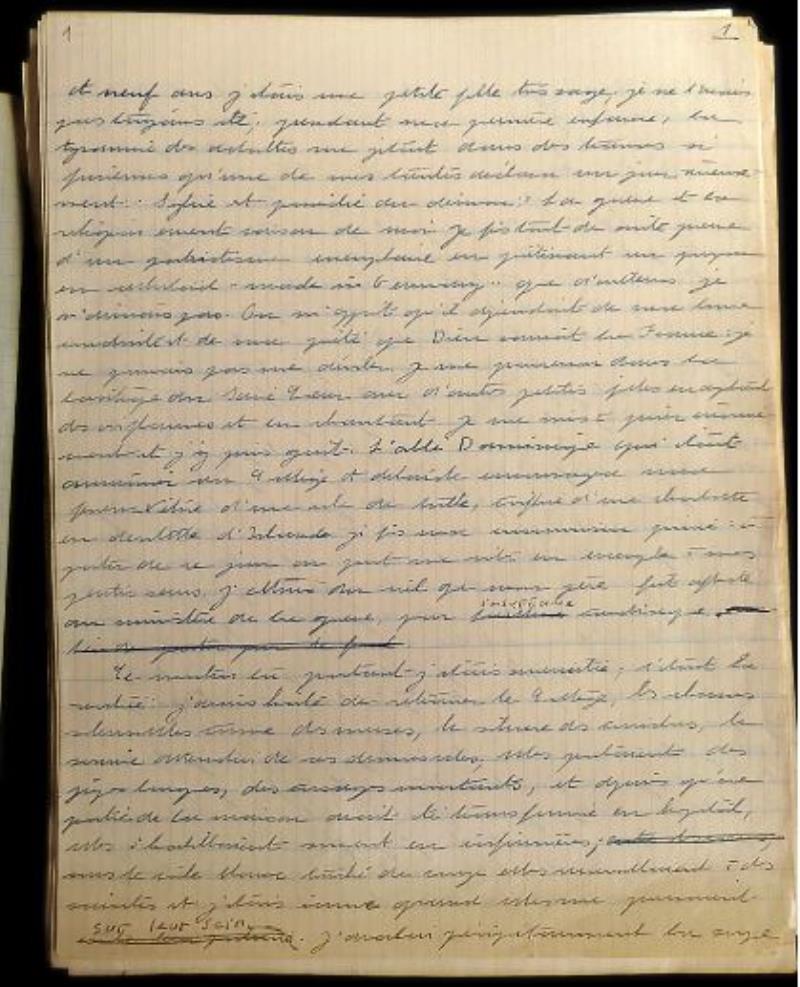 1 1
et neuf ans j'étais une petite fille très sage; je ne l'avais
pas toujours été; pendant ma première enfance, la
tyrannie des adultes me jetait dans des transes si
furieuses qu'une de mes tantes déclara un jour sérieuse-
ment: Sylvie est possédée du démon. La guerre et la
religion eurent raison de moi. Je fis tout de suite preuve
d'un patriotisme exemplaire en piétinant un poupon
en celluloïd "made in Germany" que d'ailleurs je
n'aimais pas. On m'apprit qu'il dépendait de ma bonne
conduite et de ma piété que Dieu sauvât la France: je
ne pouvais pas me dérober. Je me promenai dans la
basilique du Sacré Cœur avec d'autres petites filles en agitant
des oriflammes et en chantant. Je me mis à prier énormé-
ment et j'y pris goût. L'abbé Dominique qui était
aumônier au Collège Adelaïde encouragea ma
ferveur. Vêtue d'une robe de tulle, coiffée d'une charlotte
en dentelle d'Irlande je fis ma communion privée: à
partir de ce jour on put me citer en exemple à mes
petites sœurs. J'obtins du ciel que mon père fût affecté
au ministère de la guerre, pour insuffisance cardiaque.
Ce matin là pourtant j'étais surexcitée; c'était la
rentrée: j'avais hâte de retrouver le Collège, les classes
solennelles comme des messes, le silence des couloirs, le
sourire attendri de ces demoiselles; elles portaient des
jupes longues, des corsages montants, et depuis qu'une
partie de la maison avait été transformée en hôpital,
elles s'habillaient souvent en infirmières;
sous le voile blanc taché de rouge elles ressemblaient à des
saintes et j'étais émue quand elles me pressaient
sur leur sein. J'avalai précipitamment la soupe